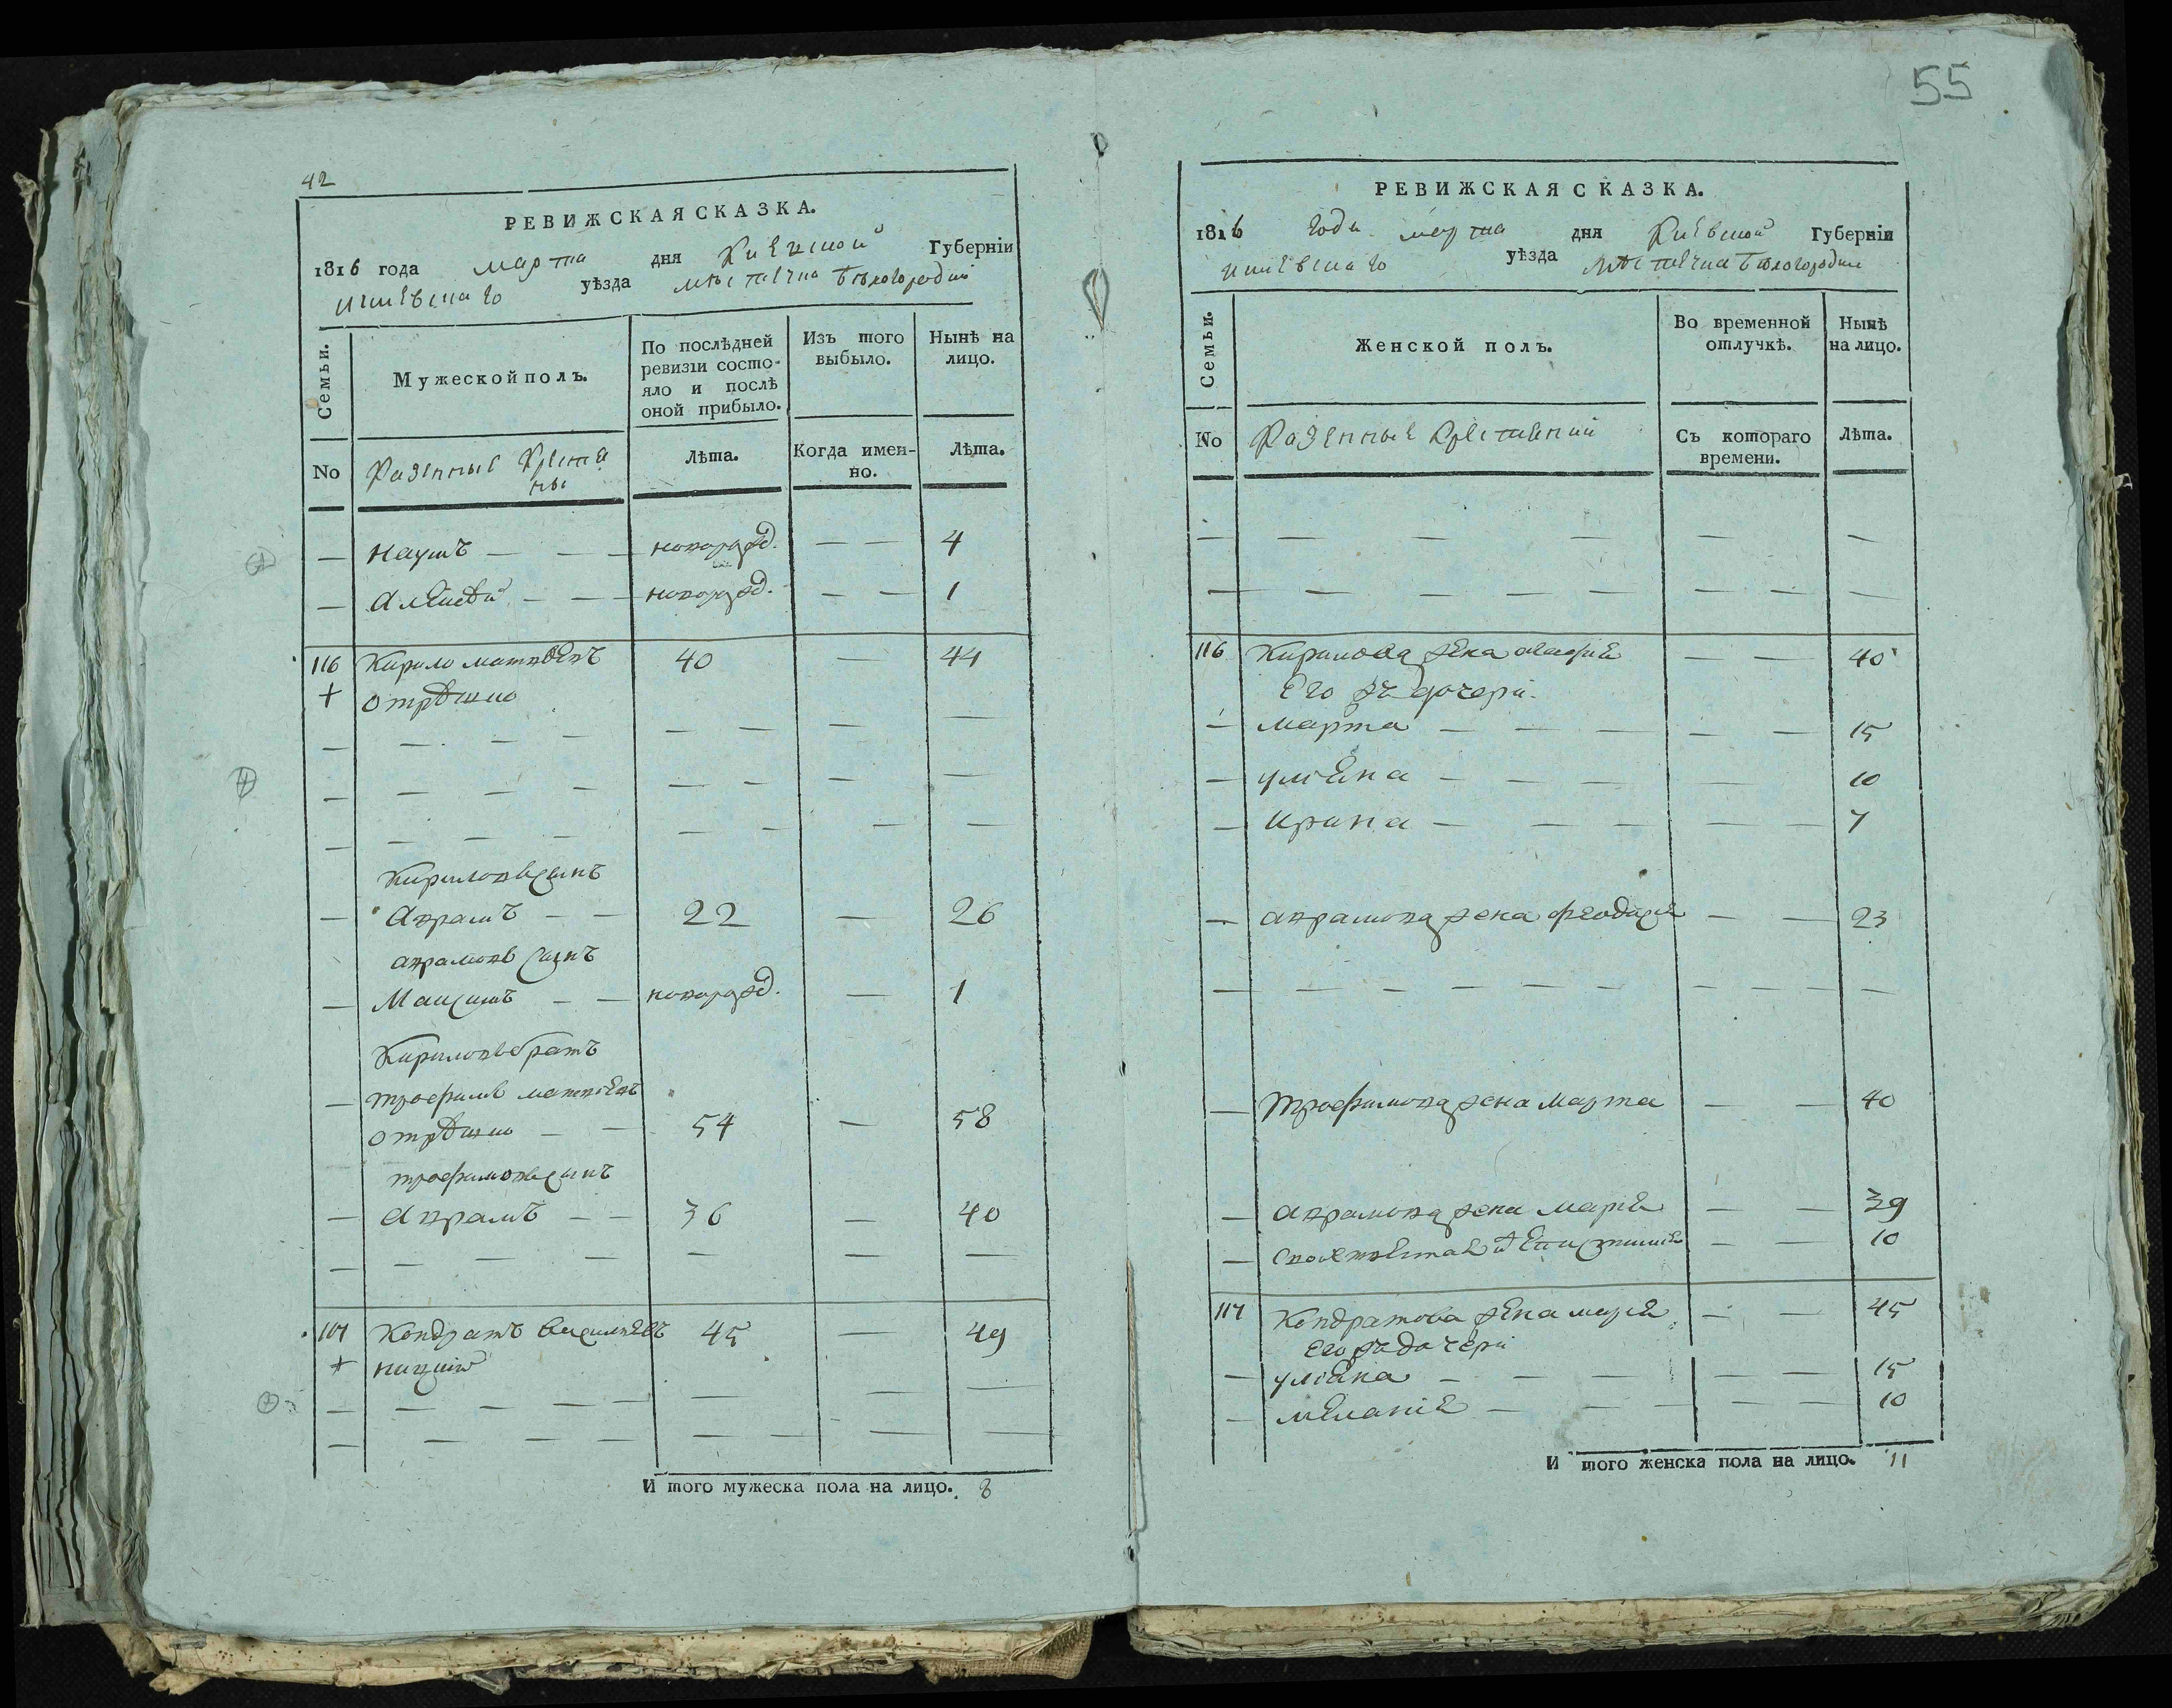 42
РЕВИЖСКАЯ СКАЗКА.
1816 года марта дня Киевской Губерніи
Кіевскаго уѣзда мѣстечка Бѣлогородки
Семьи.
Мужеской полъ.
По послѣдней ревизіи состояло и послѣ оной прибыло.
Изъ того выбыло.
Нынѣ на лицо.
No
Казенные Крестяны
Лѣта.
Когда именно.
Лѣта.
— Наумъ — — — новорожд. — — 4
— Алексѣй — — — новорожд. — — 1
116 Кирило матвѣевъ 40 — 44
+ отрѣшко
Кириловъ сынъ
— Аврамъ — — 22 — 26
аврамовъ сынъ
— Максимъ — — новорожд. — 1
Кириловъ братъ
— трофимъ матвѣевъ
отрѣшко — — 54 — 58
трофимовъ сынъ
— Аврамъ — — 36 — 40
117 Кондратъ василіевъ 45 — 49
+
И того мужеска пола на лицо. 8
55
РЕВИЖСКАЯ СКАЗКА.
1816 года марта дня Киевской Губерніи
Кіевскаго уѣзда мѣстечка Бѣлогородки
Семьи.
Женской полъ.
Во временной отлучкѣ.
Нынѣ на лицо.
No
Казенные Крестянки
Съ котораго времени.
Лѣта.
116 Кирилова жена — — 40
Его жъ дочери.
— марта — — — — — 15
— уліяна — — — — 10
— Ирина — — — — — 7
— аврамова жена феодосія — — 23
— трофимова жена марта — — 40
— аврамова жена марія — — 39
— — — 10
117 Кондратова жена марія — — 45
Его жъ дочери
— уліяна — — — — — 15
— меланія — — — — — 10
И того женска пола на лицо. 11